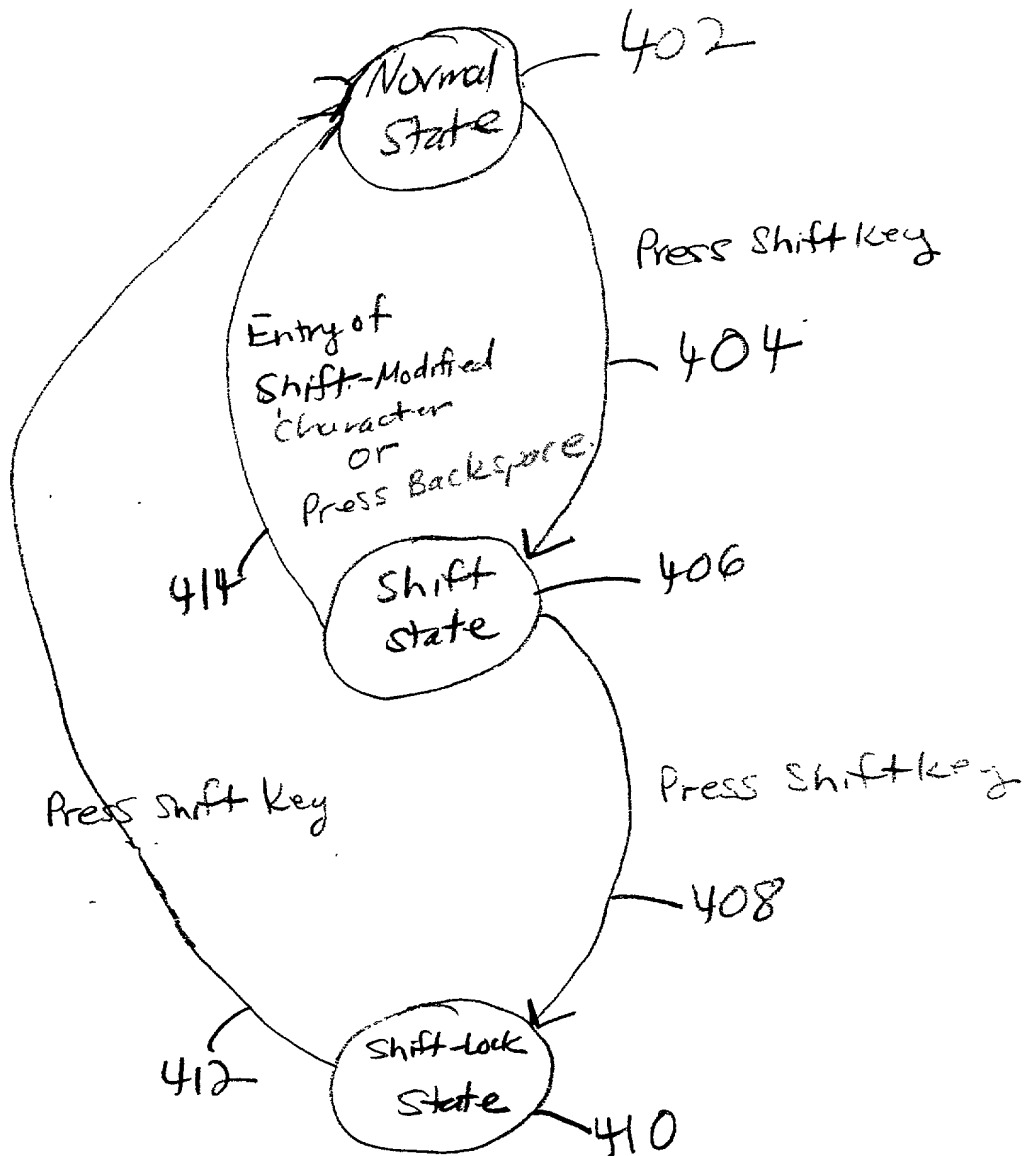 402
Normal
State
Press Shift key
404
Entry of
Shift-Modified
Character
or
Press Backspace.
414
Shift
state
406
Press Shift key
Press Shift key
408
412
Shift-Lock
State
410